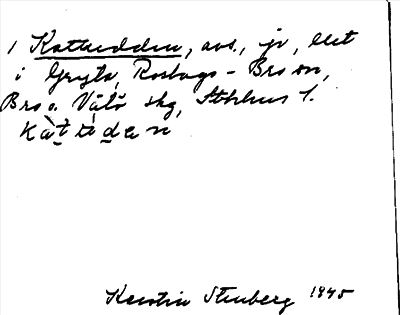 1 Kattudden, avs., jo, litet
i Gryta, Roslags-Bro sn,
Bro o. Vätö skg, Sthlms l.
Kerstin Stenberg 1945